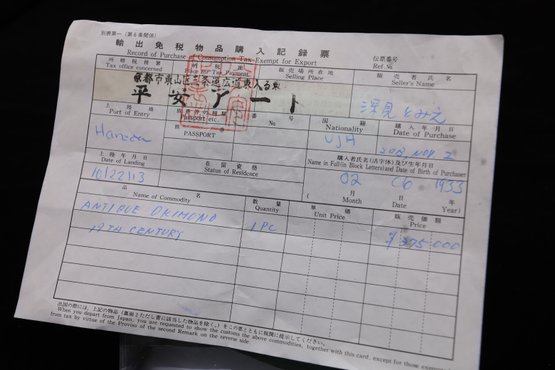 別表第一(第6条関係)
輸出免税物品購入記録票
Record of Purchase of Consumption Tax-Exempt for Export
伝票番号
Ref №
所轄税務署
Tax office concerned
Place for Tax Payment
販売場所在地
Selling Place
販売者氏名
Seller's Name
京都市東山区三条通
東入る東
平安アート
深見とみえ
上陸地
Port of Entry
Passport etc.
番号
№
国籍
Nationality
購入年月日
Date of Purchase
Haneda
PASSPORT
USA
上陸年月日
Date of Landing
在留資格
Status of Residence
購入者氏名(活字体)及び生年月日
Name in Full (in Block Letters) and Date of Birth of Purchaser
10/22/13
02 06 1933
( 月 日 年
Month Date Year)
品名
Name of Commodity
数量
Quantity
単価
Unit Price
販売価額
Price
ANTIQUE OKIMONO
1 PC
19TH CENTURY
出国の際には、上記の物品(裏面2ただし書に該当した物品を除く。)をこの票とともに税関に提示してください。
When you depart from Japan, you are requested to show the customs the above commodities, together with this card, except for those exempted
from tax by virtue of the Proviso of the second Remark on the reverse side.